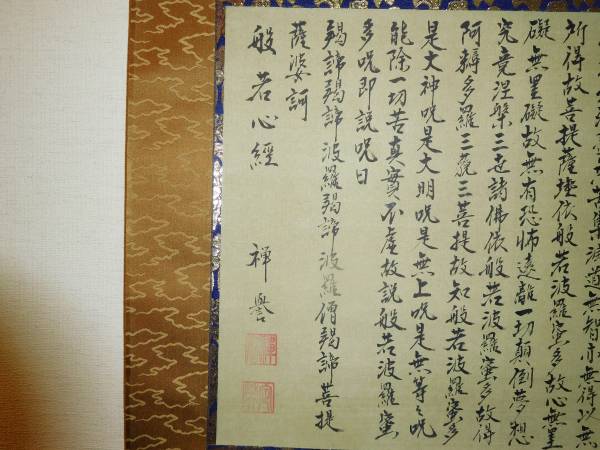 苦集滅道無智亦無得以無
所得故菩提薩埵依般若波羅蜜多故心無罣
礙無罣礙故無有恐怖遠離一切顛倒夢想
究竟涅槃三世諸佛依般若波羅蜜多故得
阿耨多羅三藐三菩提故知般若波羅蜜多
是大神呪是大明呪是無上呪是無等々呪
能除一切苦真實不虚故説般若波羅蜜
多呪即説呪曰
羯諦羯諦波羅羯諦波羅僧羯諦菩提
薩婆訶
般若心經 禅譽